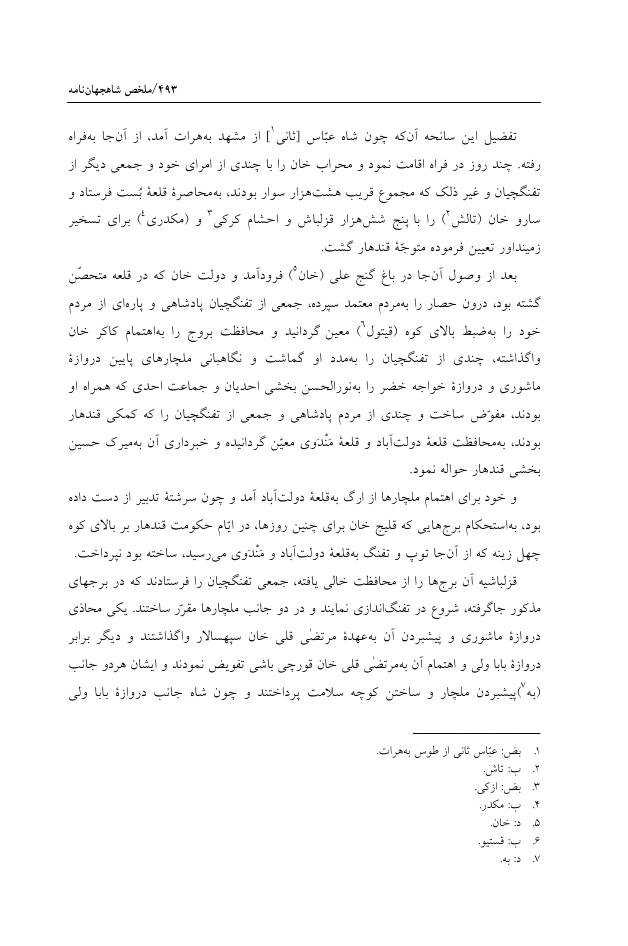 ۴۹۳/ملخص شاهجهان‌نامه
تفضیل این سانحه آن‌که چون شاه عبّاس [ثانی۱] از مشهد به‌هرات آمد، از آن‌جا به‌فراه
رفته. چند روز در فراه اقامت نمود و محراب خان را با چندی از امرای خود و جمعی دیگر از
تفنگچیان و غیر ذلک که مجموع قریب هشت‌هزار سوار بودند، به‌محاصرهٔ قلعهٔ بُست فرستاد و
سارو خان (تالش۲) را با پنج شش‌هزار قزلباش و احشام کرکی۳ و (مکدری۴) برای تسخیر
زمینداور تعیین فرموده متوجّهٔ قندهار گشت.
بعد از وصول آن‌جا در باغ گنج علی (خان۵) فرودآمد و دولت خان که در قلعه متحصّن
گشته بود، درون حصار را به‌مردم معتمد سپرده، جمعی از تفنگچیان پادشاهی و پاره‌ای از مردم
خود را به‌ضبط بالای کوه (قیتول۶) معین گردانید و محافظت بروج را به‌اهتمام کاکر خان
واگذاشته، چندی از تفنگچیان را به‌مدد او گماشت و نگاهبانی ملچارهای پایین دروازهٔ
ماشوری و دروازهٔ خواجه خضر را به‌نورالحسن بخشی احدیان و جماعت احدی که همراه او
بودند، مفوّض ساخت و چندی از مردم پادشاهی و جمعی از تفنگچیان را که کمکی قندهار
بودند، به‌محافظت قلعهٔ دولت‌آباد و قلعهٔ مَنْدَوی معیّن گردانیده و خبرداری آن به‌میرک حسین
بخشی قندهار حواله نمود.
و خود برای اهتمام ملچارها از ارگ به‌قلعهٔ دولت‌آباد آمد و چون سرشتهٔ تدبیر از دست داده
بود، به‌استحکام برج‌هایی که قلیج خان برای چنین روزها، در ایّام حکومت قندهار بر بالای کوه
چهل زینه که از آن‌جا توپ و تفنگ به‌قلعهٔ دولت‌آباد و مَنْدَوی می‌رسید، ساخته بود نپرداخت.
قزلباشیه آن برج‌ها را از محافظت خالی یافته، جمعی تفنگچیان را فرستادند که در برجهای
مذکور جاگرفته، شروع در تفنگ‌اندازی نمایند و در دو جانب ملچارها مقرّر ساختند. یکی محاذی
دروازهٔ ماشوری و پیشبردن آن به‌عهدهٔ مرتضٰی قلی خان سپهسالار واگذاشتند و دیگر برابر
دروازهٔ بابا ولی و اهتمام آن به‌مرتضٰی قلی خان قورچی باشی تفویض نمودند و ایشان هردو جانب
(به۷)پیشبردن ملچار و ساختن کوچه سلامت پرداختند و چون شاه جانب دروازهٔ بابا ولی
۱. بض: عبّاس ثانی از طوس به‌هرات.
۲. ب: تاش.
۳. بض: ازکی.
۴. ب: مکدر.
۵. د: خان.
۶. ب: قستیو.
۷. د: به.